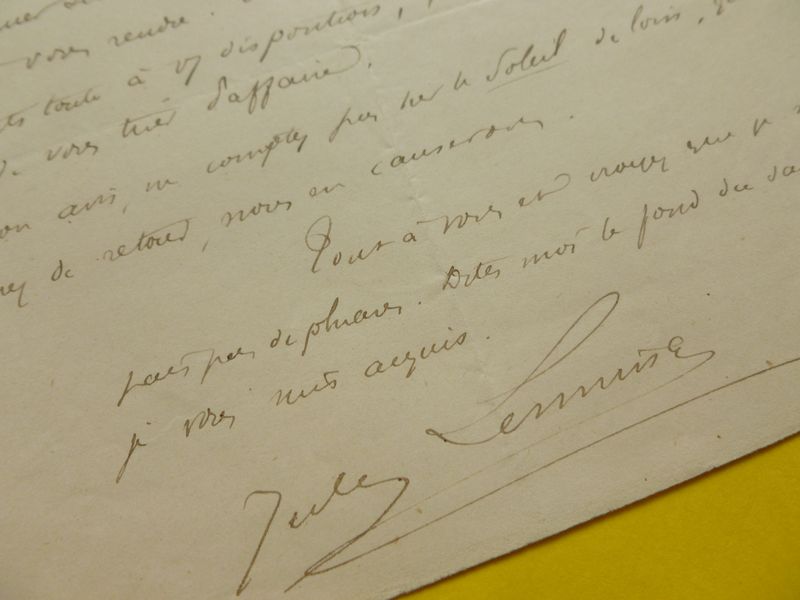 vous rendre.
toute à vos dispositions,
de vous tirer d'affaire.
avis, ne comptez pas sur le Soleil de loin,
de retour, nous en causerons.
Tout à vous et croyez que je
fais pas de phrases. Dites moi le fond du
je vous suis acquis.
Jules Lermina